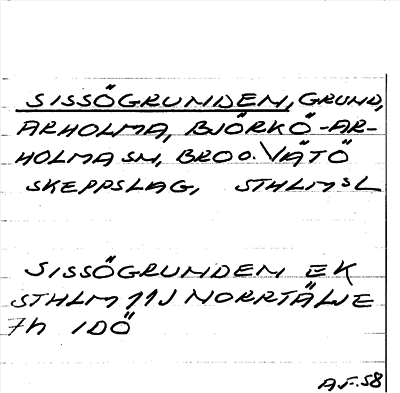 SISSÖGRUNDEN, GRUND,
ARHOLMA, BJÖRKÖ-AR-
HOLMA SN, BRO O. VÄTÖ
SKEPPSLAG, STHLMS L
SISSÖGRUNDEN EK
STHLM 11J NORRTÄLJE
7h IDÖ
A.F. 58